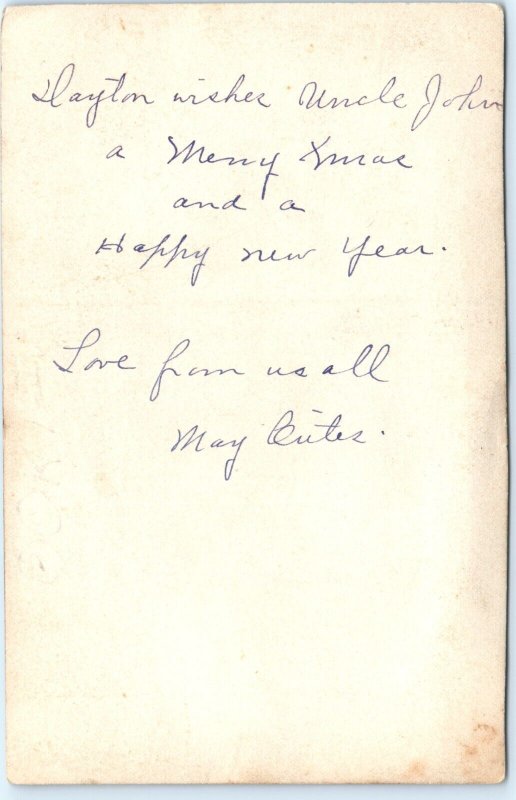 Dayton wishes Uncle John
a Merry Xmas
and a
Happy new Year.
Love from us all
May